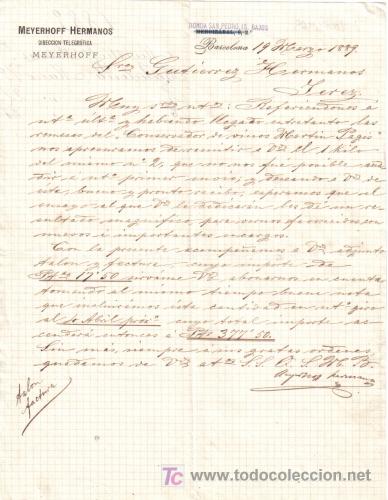 MEYERHOFF HERMANOS
DIRECCION TELEGRÁFICA
MEYERHOFF
RONDA SAN PEDRO, 15, BAJOS
MENDIZABAL, 9, 2.°
Barcelona 19 Marzo 1889
Sres Gutierrez Hermanos
Jerez
Muy sres ntros: Refiriendonos á
nta últa y habiendo llegado entretanto las
remesas del Conservador de vinos Martin Pagis
nos apresuramos de remitir a Vds el 1 kilo
del mismo nº 2, que no nos fué posible
á nto primer envio; y deseando á Vds de
este, bueno y pronto recibo, esperamos que el
ensayo al que lo les dé un re-
sultado magnífico, para vernos favorecidos con
numeros é importantes encargos.
Con la presente acompañamos a Vds adjunto
talon y factura cuyo importe de
Ptas 17'50 sirvanse Vds abonarnos en cuenta
tomando al mismo tiempo buena nota
que incluimos esta cantidad en nto giro
al 4 Abril próxo cuyo total importe as-
cenderá entonces á Ptas 377'50.
Sin mas, siempre á sus gratas ordenes
quedamos de Vds attos S.S. Q. S. M. B.
Meyerhoff Hermanos
Talon
factura
TC www.todocoleccion.net